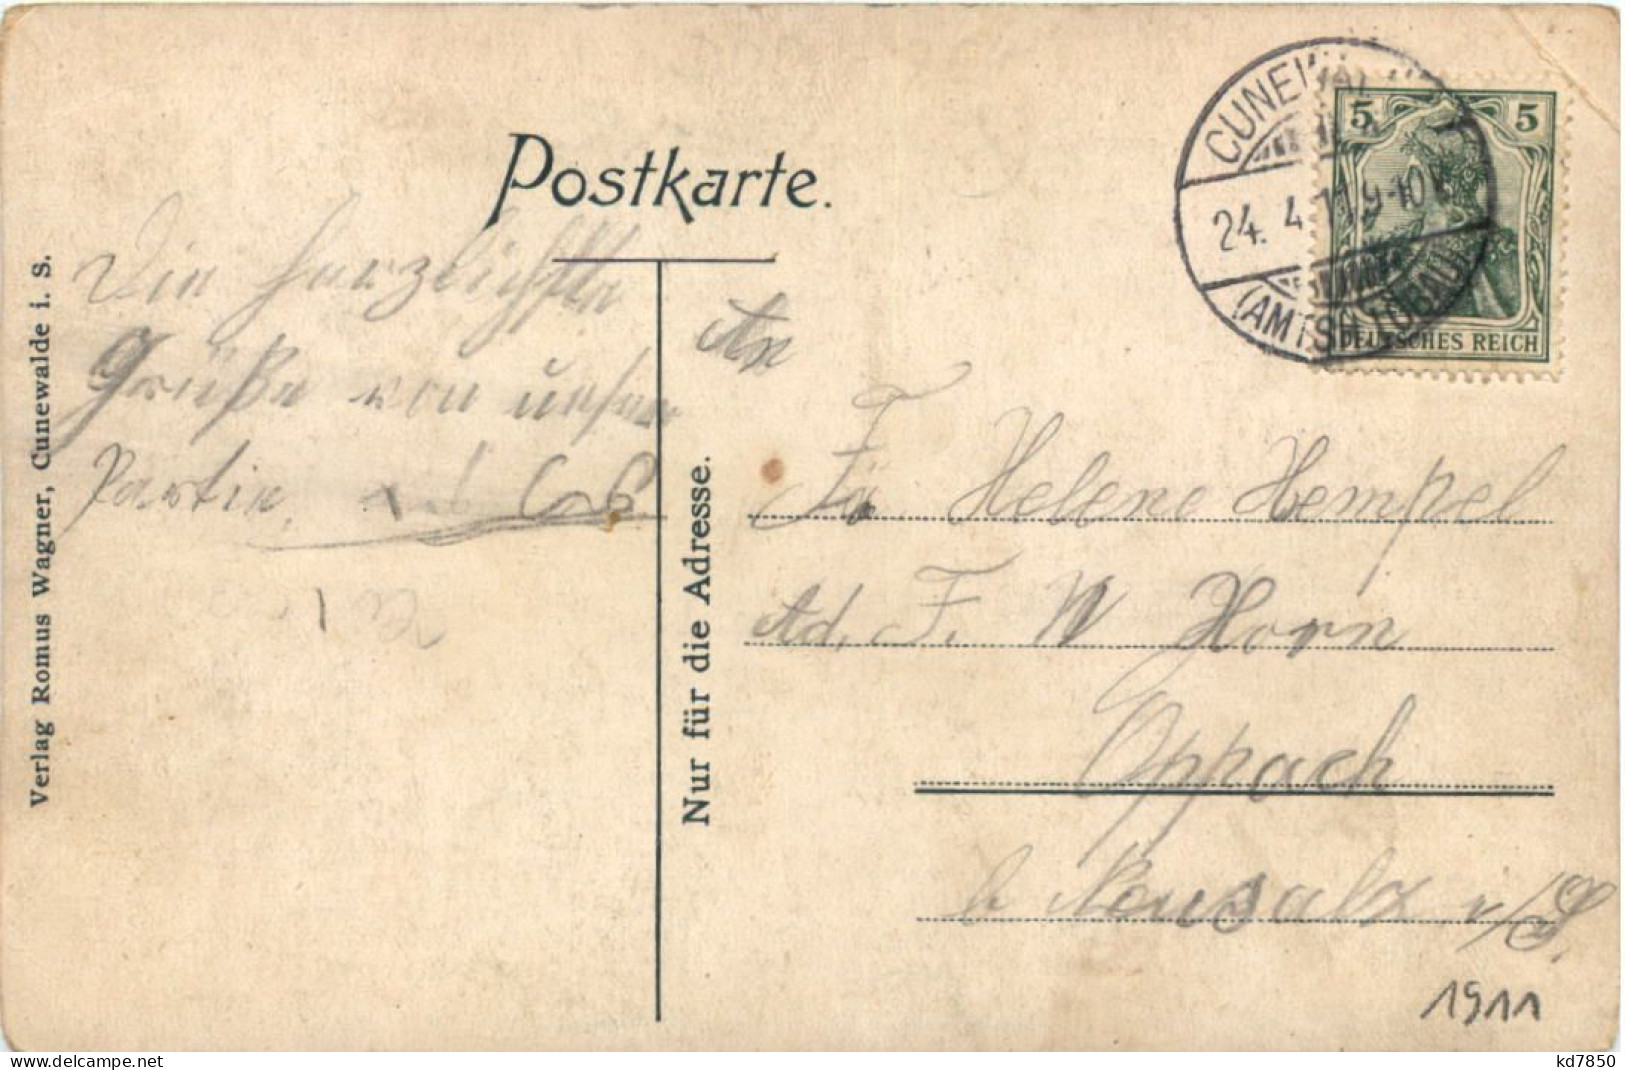 Postkarte.
Die herzlichsten
Grüße von unser
Partie
An
Helene Hempel
Ad. F. W Horn
Oppach
b Neusalz i/S.
1911
Nur für die Adresse.
Verlag Romus Wagner, Cunewalde i. S.
CUNEWAL
24. 4. 11. 9-10
(AMTSH. LÖBAU)
5 5
DEUTSCHES REICH
www.delcampe.net
kd7850